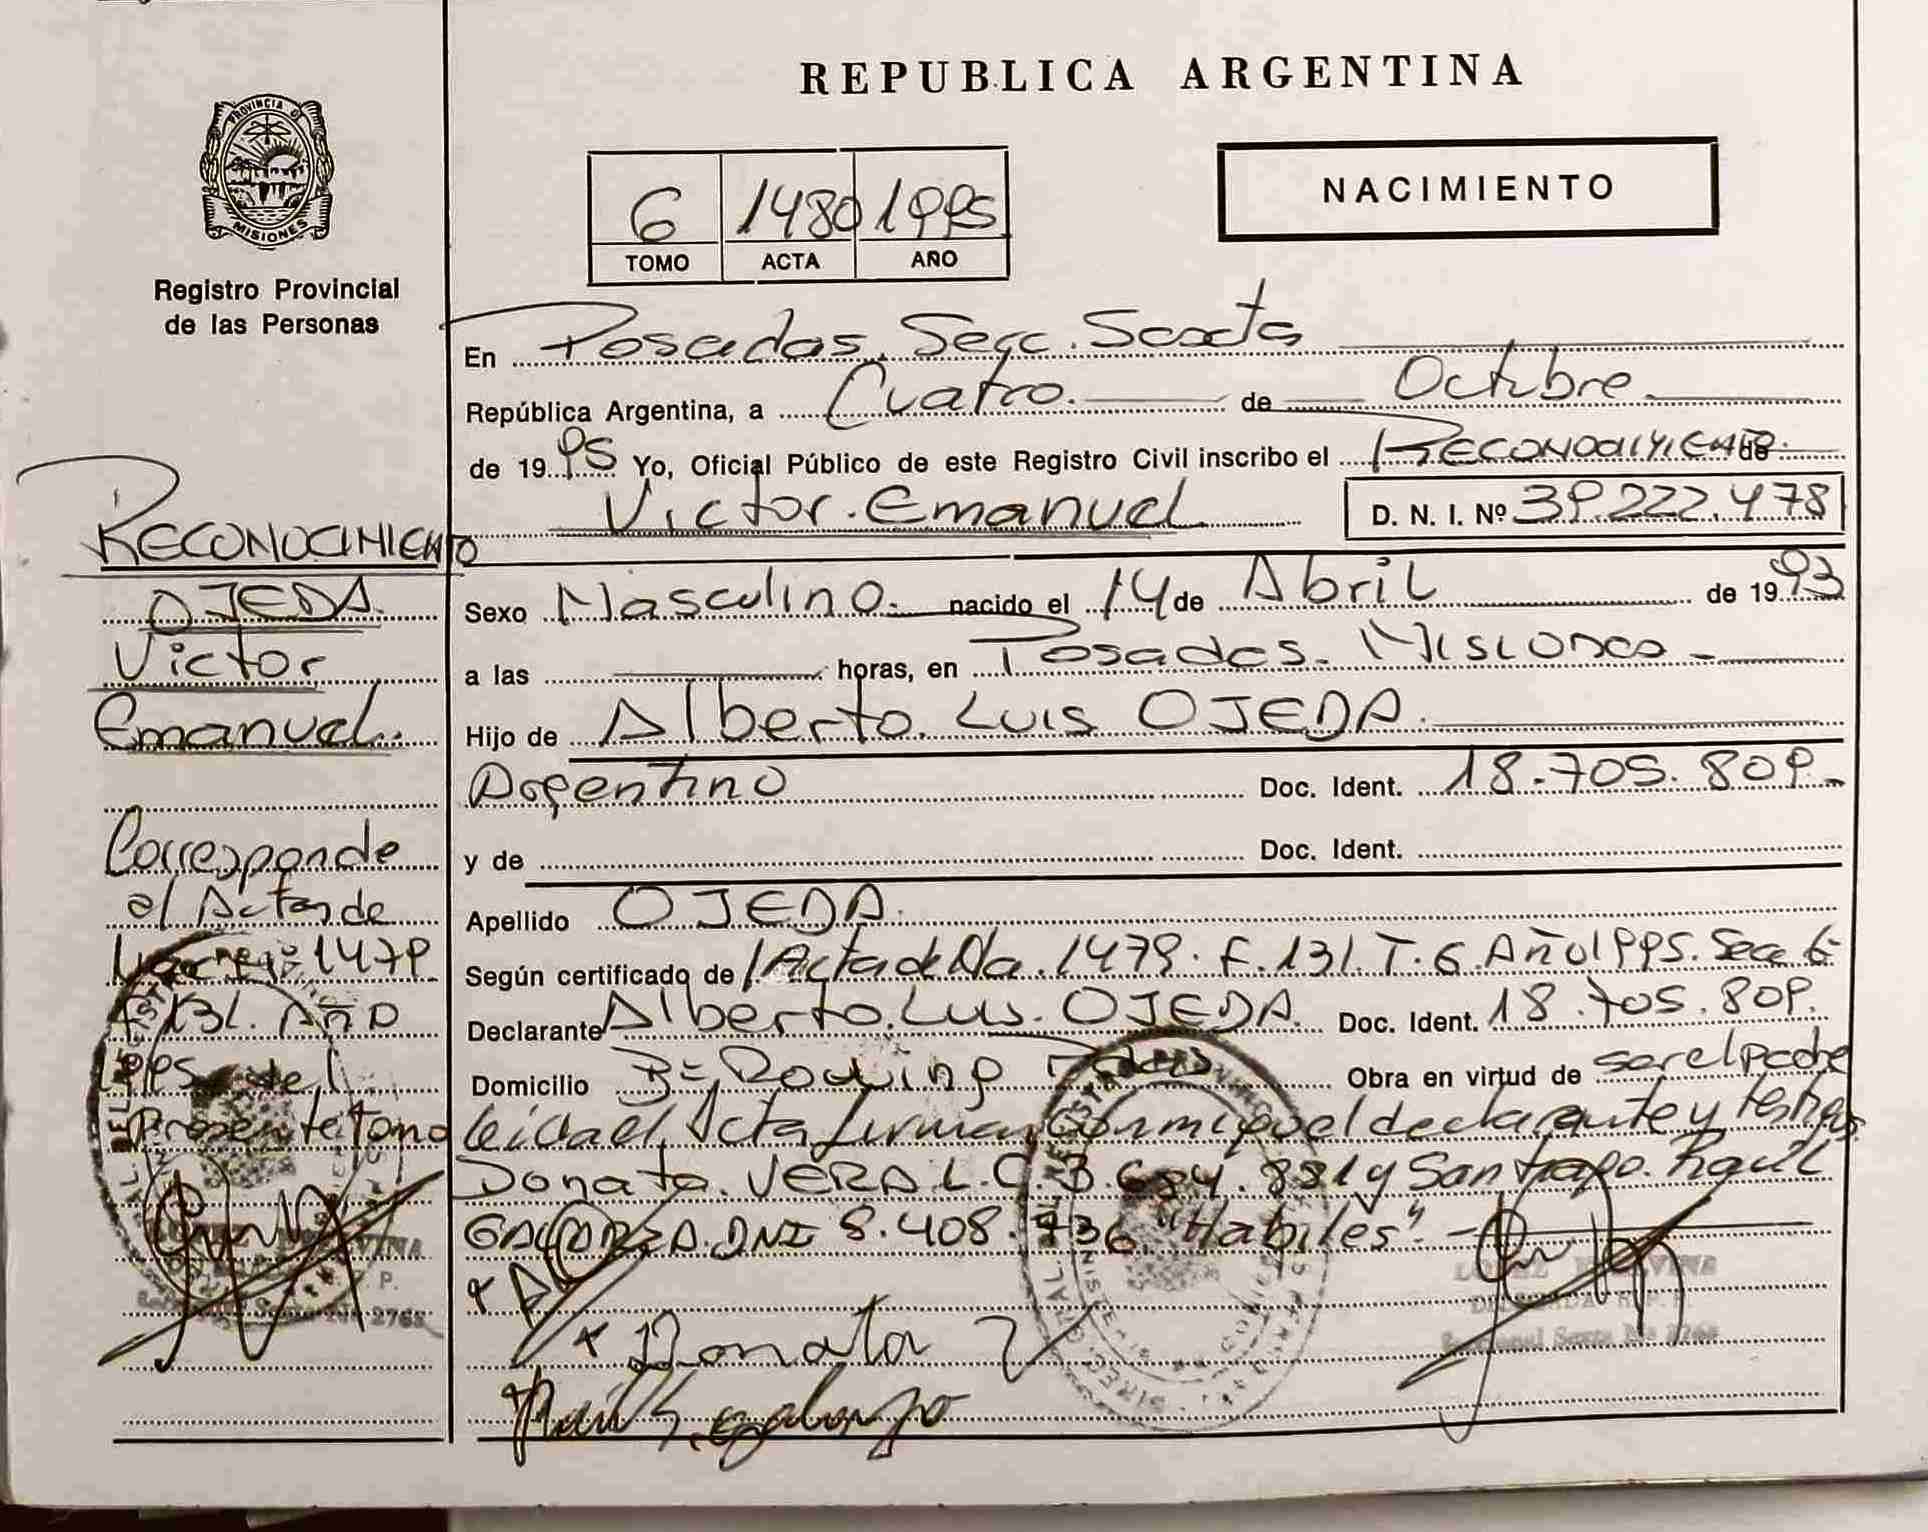 REPUBLICA ARGENTINA
PROVINCIA DE
MISIONES
Registro Provincial
de las Personas
6 1480 1995
TOMO ACTA AÑO
NACIMIENTO
En Posadas. Secc. Sexta
República Argentina, a Cuatro. de Octubre
de 1995 Yo, Oficial Público de este Registro Civil inscribo el RECONOCIMIENTO
Victor Emanuel D. N. I. Nº 39.222.478
Sexo Masculino. nacido el 14 de Abril de 1993
a las horas, en Posadas. Misiones
Hijo de Alberto Luis OJEDA.
Argentino Doc. Ident. 18.705.809.
y de Doc. Ident.
Apellido OJEDA.
Según certificado de Acta de Na. 1479. F. 131. T. 6. Año 1995. Secc 6
Declarante Alberto. Luis. OJEDA. Doc. Ident. 18.705.809.
Domicilio Bº Obra en virtud de ser el padre
leida el Acta firman conmigo el declarante y testigos
Donato. VERA L. C. 3.684.881 y Santiago. Raúl
GALARZA. DNI 8.408.736 "Habiles".
RECONOCIMIENTO
OJEDA.
Victor
Emanuel.
Corresponde
el Acta de
1479
131. Año
1995 del
Presente Tomo
Donata
Seccional Sexta Nº 2768